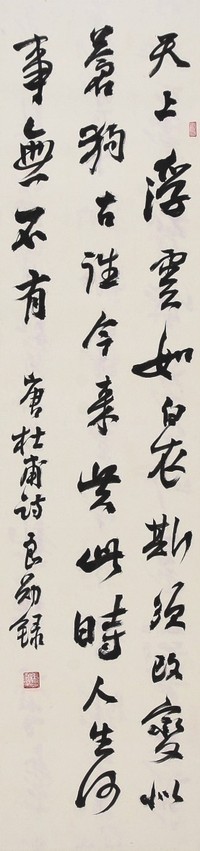 天上浮雲如白衣斯須改變似
蒼狗古往今来共此時人生何
事無不有
唐杜甫詩良勛録